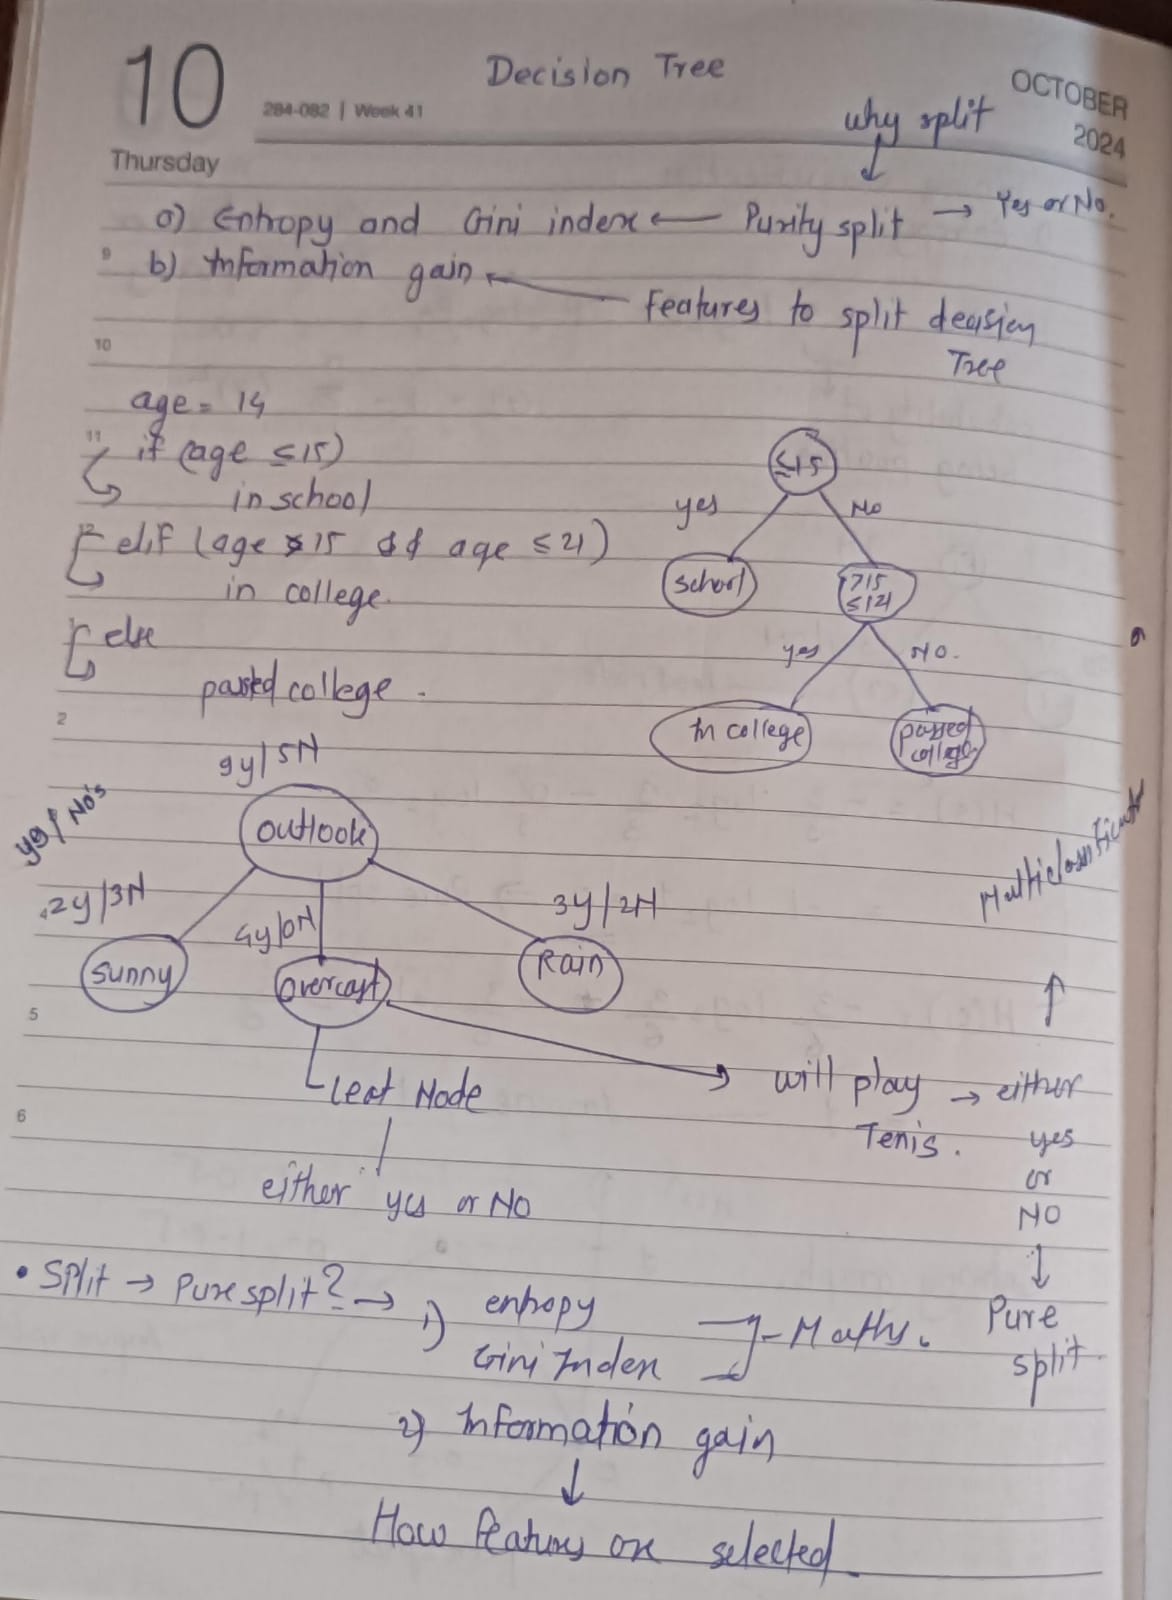 10
Thursday
284-082 | Week 41
Decision Tree
OCTOBER
2024
why split
↓
a) Entropy and Gini index ← Purity split → Yes or No.
b) Information gain ← Features to split decision
Tree
9
10
11
12
2
5
6
age = 14
if (age ≤ 15)
in school
elif (age > 15 && age ≤ 21)
in college.
else
passed college.
≤15
yes
No
school
>15
≤21
yes
NO.
In college
passed
college
9y/5N
yes/No's
outlook
2y/3N
4y/0N
3y/2N
sunny
overcast
Rain
Leaf Node
either yes or NO
will play → either
Tenis.
yes
or
NO
↓
Pure
split.
↑
• Split → Pure split? → 1) entropy
Gini Index
Maths.
2) Information gain
↓
How features are selected.